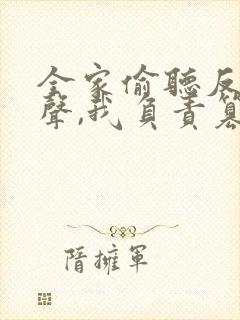 全家偷聽反
聲,我負責篡
隋擁軍